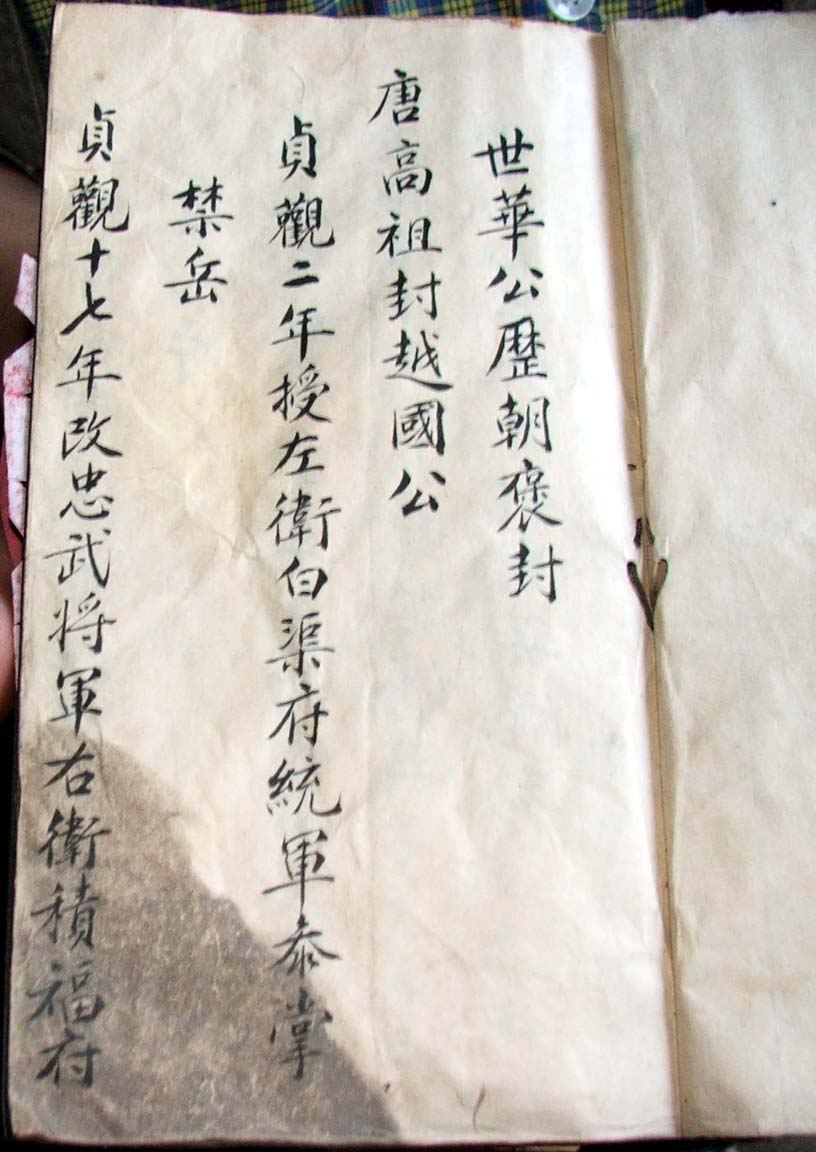 世華公歷朝褒封
唐高祖封越國公
貞觀二年授左衛白渠府統軍叅掌
禁岳
貞觀十七年改忠武将軍右衛積福府